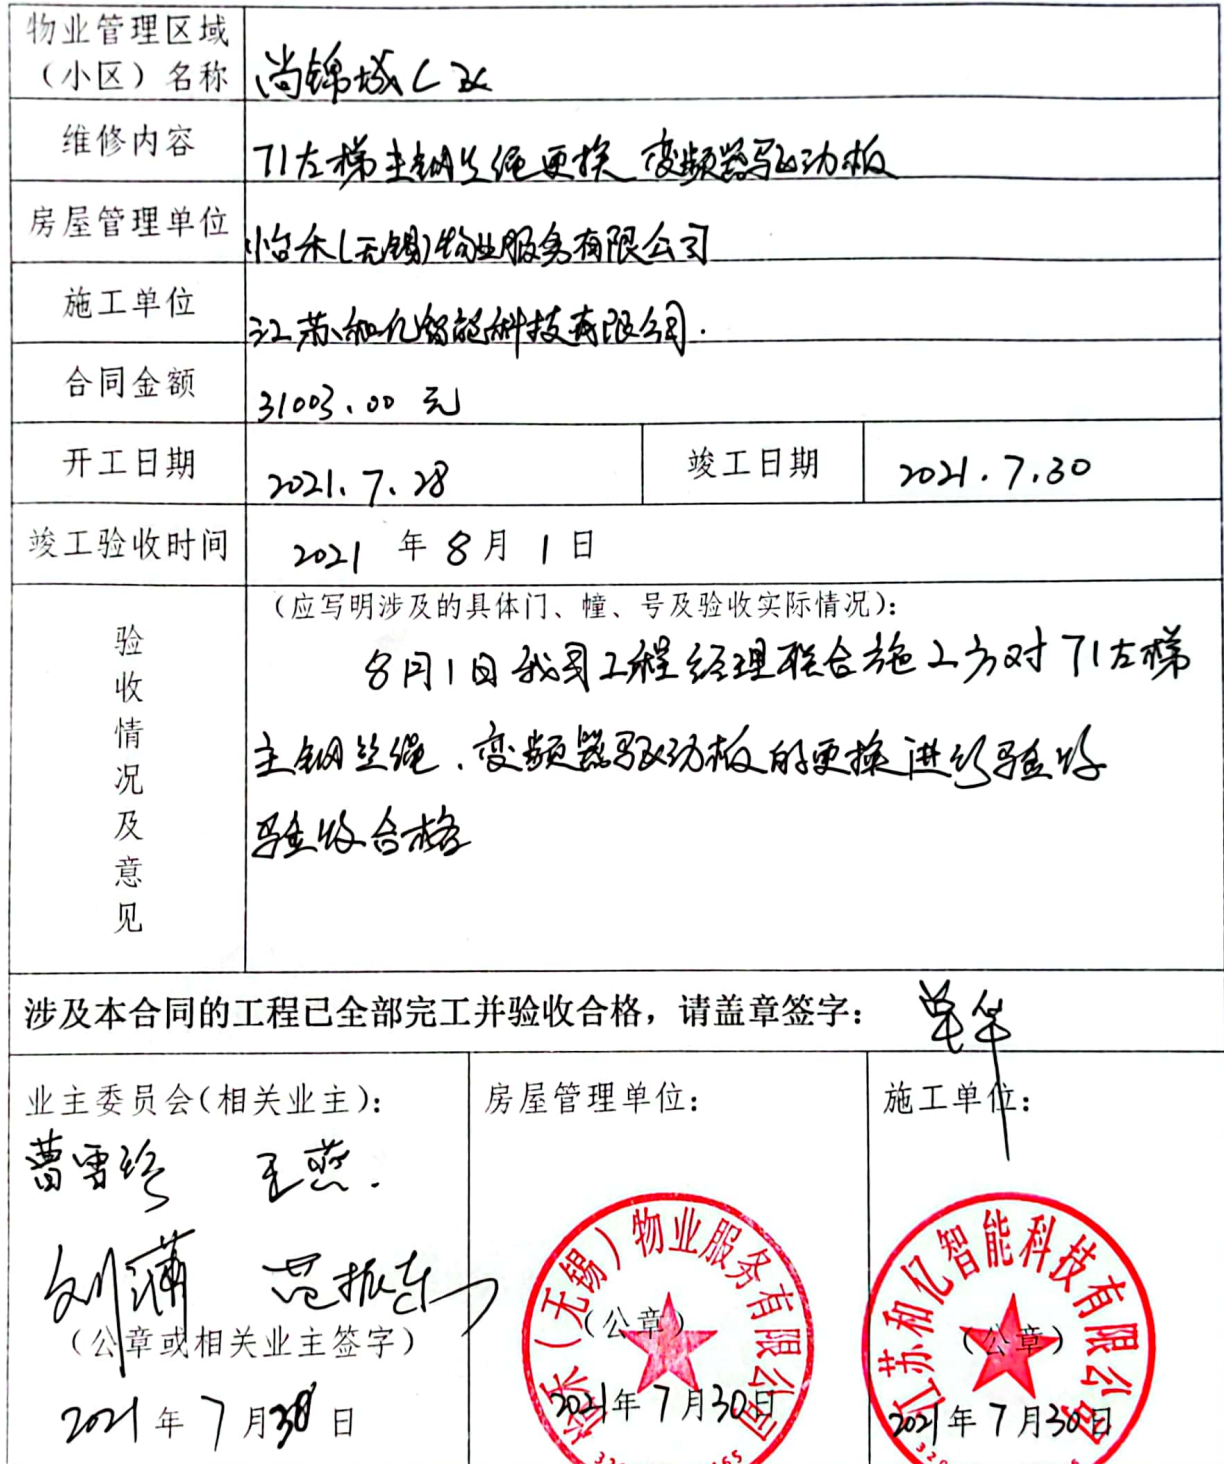 物业管理区域
（小区）名称
尚锦城C区
维修内容
71左梯主钢丝绳更换 变频器驱动板
房屋管理单位
怡禾(无锡)物业服务有限公司
施工单位
江苏和亿智能科技有限公司.
合同金额
31003.00 元
开工日期
2021.7.28
竣工日期
2021.7.30
竣工验收时间
2021 年 8 月 1 日
验收情况及意见
（应写明涉及的具体门、幢、号及验收实际情况）：
8月1日我司工程经理联合施工方对71左梯
主钢丝绳、变频器驱动板的更换进行验收
验收合格
涉及本合同的工程已全部完工并验收合格，请盖章签字：
单华
业主委员会（相关业主）：
曹雪珍 王燕.
刘 范振东
（公章或相关业主签字）
2021 年 7 月 30 日
房屋管理单位：
怡禾（无锡）物业服务有限公司
（公章）
2021年 7 月 30 日
施工单位：
江苏和亿智能科技有限公司
（公章）
2021年 7 月 30 日